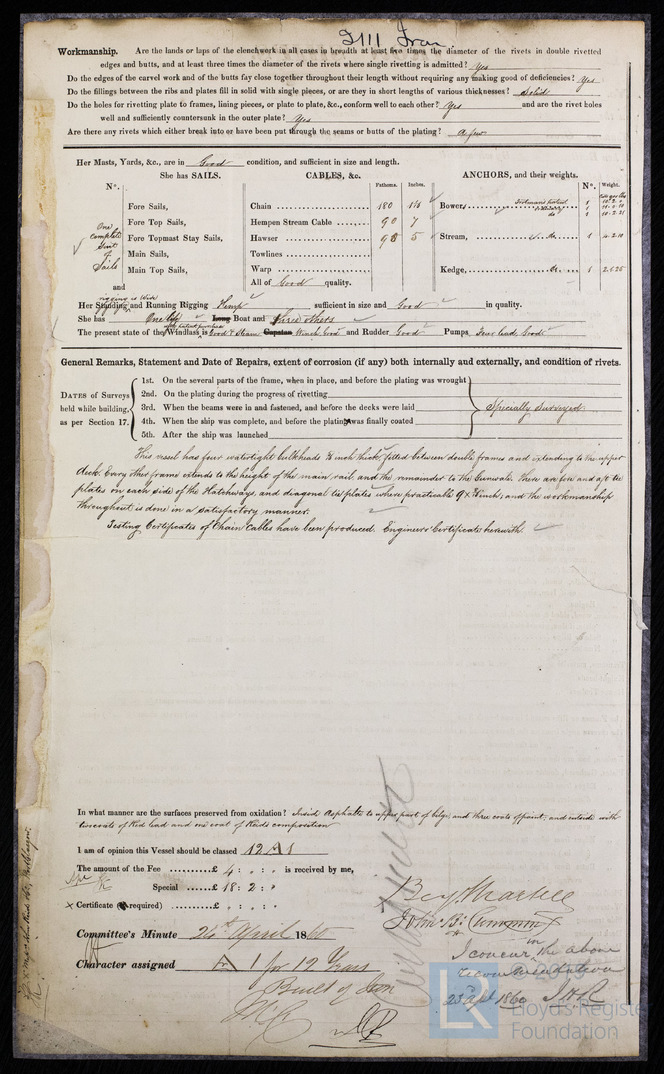 Iron
Workmanship. Are the lands or laps of the clenchwork in all cases in breadth at least five times the diameter of the rivets in double rivetted
edges and butts, and at least three times the diameter of the rivets where single rivetting is admitted? Yes
Do the edges of the carvel work and of the butts fay close together throughout their length without requiring any making good of deficiencies? Yes
Do the fillings between the ribs and plates fill in solid with single pieces, or are they in short lengths of various thicknesses? Solid
Do the holes for rivetting plate to frames, lining pieces, or plate to plate, &c., conform well to each other? Yes and are the rivet holes
well and sufficiently countersunk in the outer plate? Yes
Are there any rivets which either break into or have been put through the seams or butts of the plating? A few
Her Masts, Yards, &c., are in Good condition, and sufficient in size and length.
She has SAILS. CABLES, &c. ANCHORS, and their weights.
N°. Fathoms. Inches. N°. Weight.
Fore Sails, Chain 180 Bowers
Fore Top Sails, Hempen Stream Cable 90 7
Fore Topmast Stay Sails, Hawser 90 5 Stream, do 1 4.2.10
Main Sails, Towlines
Main Top Sails, Warp Kedge, do 1
One complete Suit of Sails
and All of Good quality.
rigging is Wire
Her Standing and Running Rigging Hemp sufficient in size and Good in quality.
She has One Life Long Boat and three others
The present state of the Windlass is Good & Steam Capstan Winch Good and Rudder Good Pumps Four lead, Good
General Remarks, Statement and Date of Repairs, extent of corrosion (if any) both internally and externally, and condition of rivets.
DATES of Surveys held while building, as per Section 17.
1st. On the several parts of the frame, when in place, and before the plating was wrought
2nd. On the plating during the progress of rivetting
3rd. When the beams were in and fastened, and before the decks were laid Specially Surveyed
4th. When the ship was complete, and before the plating was finally coated
5th. After the ship was launched
This vessel has four watertight bulkheads inch thick, fitted between double frames and extending to the upper
deck. Every other frame extends to the height of the main rail and the remainder to the Gunwale. There are fore and aft tie
plates on each side of the Hatchways, and diagonal tie plates where practicable inch, and the workmanship
throughout is done in a satisfactory manner.
Testing Certificates of Chain Cables have been produced. Engineers Certificate herewith.
In what manner are the surfaces preserved from oxidation? Inside Asphalte to upper part of bilge, and three coats of paint, and outside with
two coats of Red lead and one coat of composition
I am of opinion this Vessel should be classed 12 A 1
The amount of the Fee £ 4 : " : " is received by me,
Special £ 18 : 2 : "
Certificate (if required) £ " : " : "
Committee's Minute 24th April 1860
Character assigned A 1 for 12 Years
Built of Iron
I concur in the above
recommendation
23 Apl 1860
LR
Lloyd's Register
Foundation